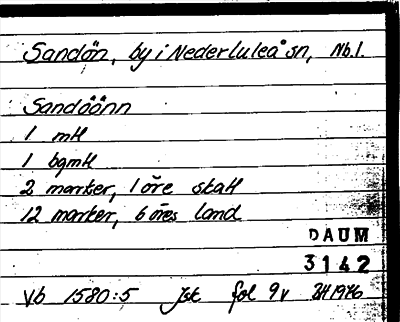 Sandön, by i Nederluleå sn, Nb.l.
Sandöönn
1 mtl
1 bgmtl
2 marker, 1 öre skatt
12 marker, 6 öres land
DAUM
3142
Vb 1580:5 Jsk fol 9v